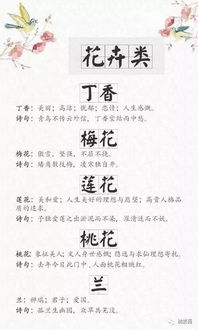 花卉类
丁香
丁香：美丽；高洁；忧郁；恋情；人生感慨。
诗句：青鸟不传云外信，丁香空结雨中愁。
梅花
梅花：傲雪、坚强、不屈不挠。
诗句：墙角数枝梅，凌寒独自开。
莲花
莲花：美和爱；人生美好的理想与愿望；高贵人格品
质的追求。
诗句：予独爱莲之出淤泥而不染，濯清涟而不妖。
桃花
桃花：象征美人；文人身世感慨；隐逸与求仙理想寄托。
诗句：去年今日此门中，人面桃花相映红。
兰
兰：神瑞；君子；爱国。
诗句：孤兰生幽园，众草共芜没。